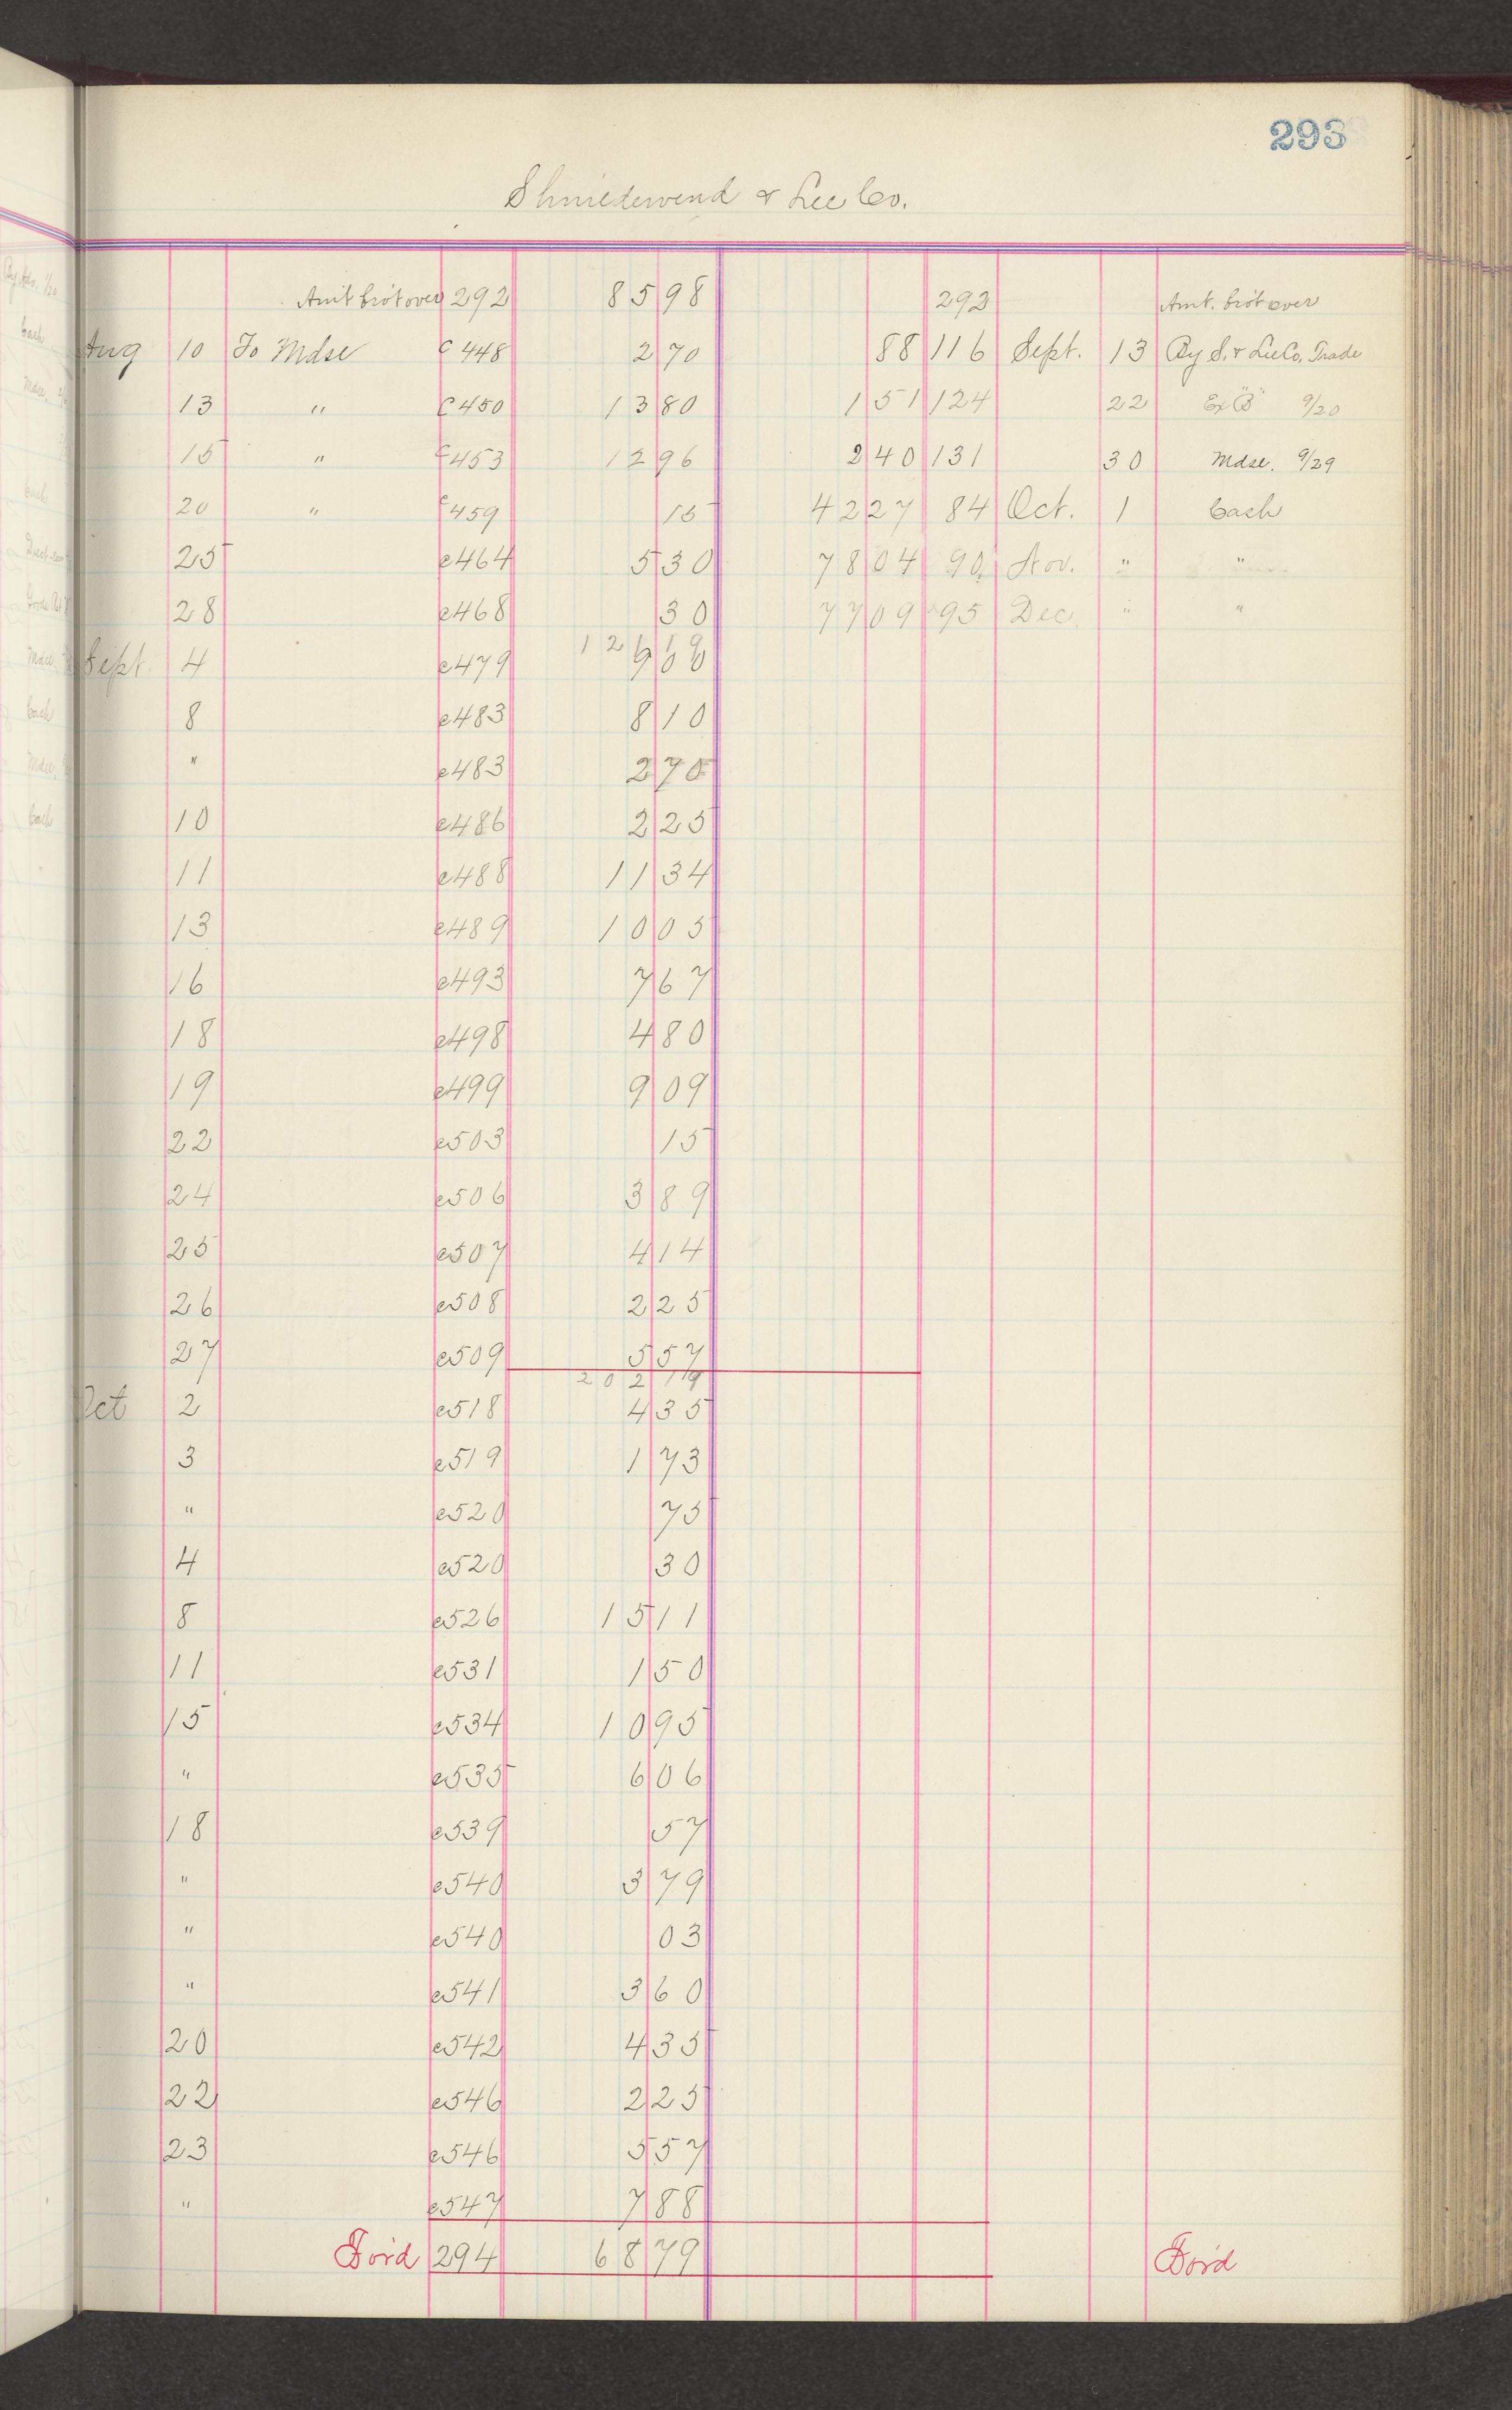 293
Shniedewend & Lee Co.
Amt bro't over 292 85 98 292 Amt. bro't over
Aug 10 To Mdse C 448 2 70 88 116 Sept. 13 By S. & Lee Co. Trade
13 " C 450 13 80 1 51 124 22 Ex "B" 9/20
15 " C 453 12 96 2 40 131 30 Mdse. 9/29
20 " C 459 15 42 27 84 Oct. 1 Cash
25 C 464 5 30 78 04 90 Nov. " "
28 C 468 30 77 09 95 Dec. " "
121 19
Sept. 4 C 479 9 00
8 C 483 8 10
" C 483 2 70
10 C 486 2 25
11 C 488 11 34
13 C 489 10 05
16 C 493 7 67
18 C 498 4 80
19 C 499 9 09
22 C 503 15
24 C 506 3 89
25 C 507 4 14
26 C 508 2 25
27 C 509 5 57
202 19
Oct 2 C 518 4 35
3 C 519 1 73
" C 520 75
4 C 520 30
8 C 526 15 11
11 C 531 1 50
15 C 534 10 95
" C 535 6 06
18 C 539 57
" C 540 3 79
" C 540 03
" C 541 3 60
20 C 542 4 35
22 C 546 2 25
23 C 546 5 57
" C 547 7 88
For'd 294 68 79 For'd